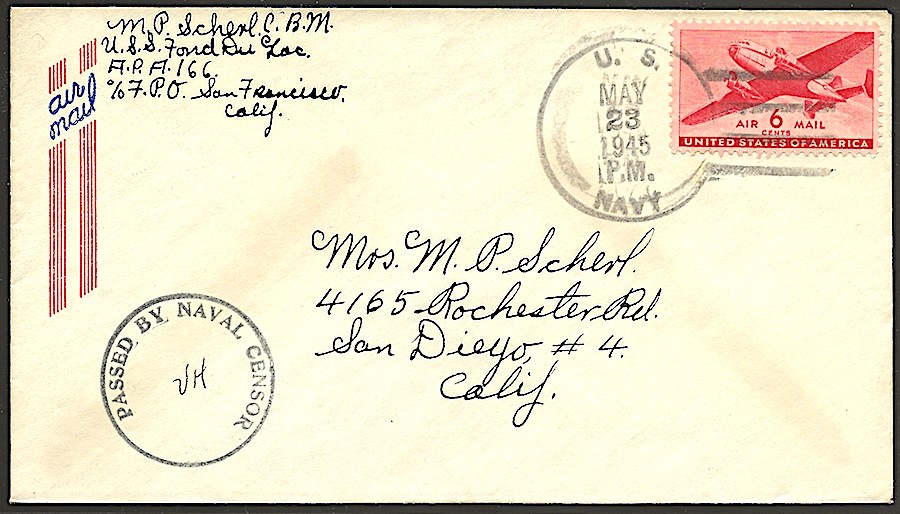 M. P. Scherl. C. B. M.
U. S. S. Fond Du Lac.
A. P. A. 166
c/o F. P. O. San Francisco,
Calif.
air
mail
U. S.
MAY
23
1945
P.M.
NAVY
AIR 6 MAIL
CENTS
UNITED STATES OF AMERICA
Mrs. M. P. Scherl.
4165 Rochester Rd.
San Diego, # 4.
Calif.
PASSED BY NAVAL CENSOR
JH